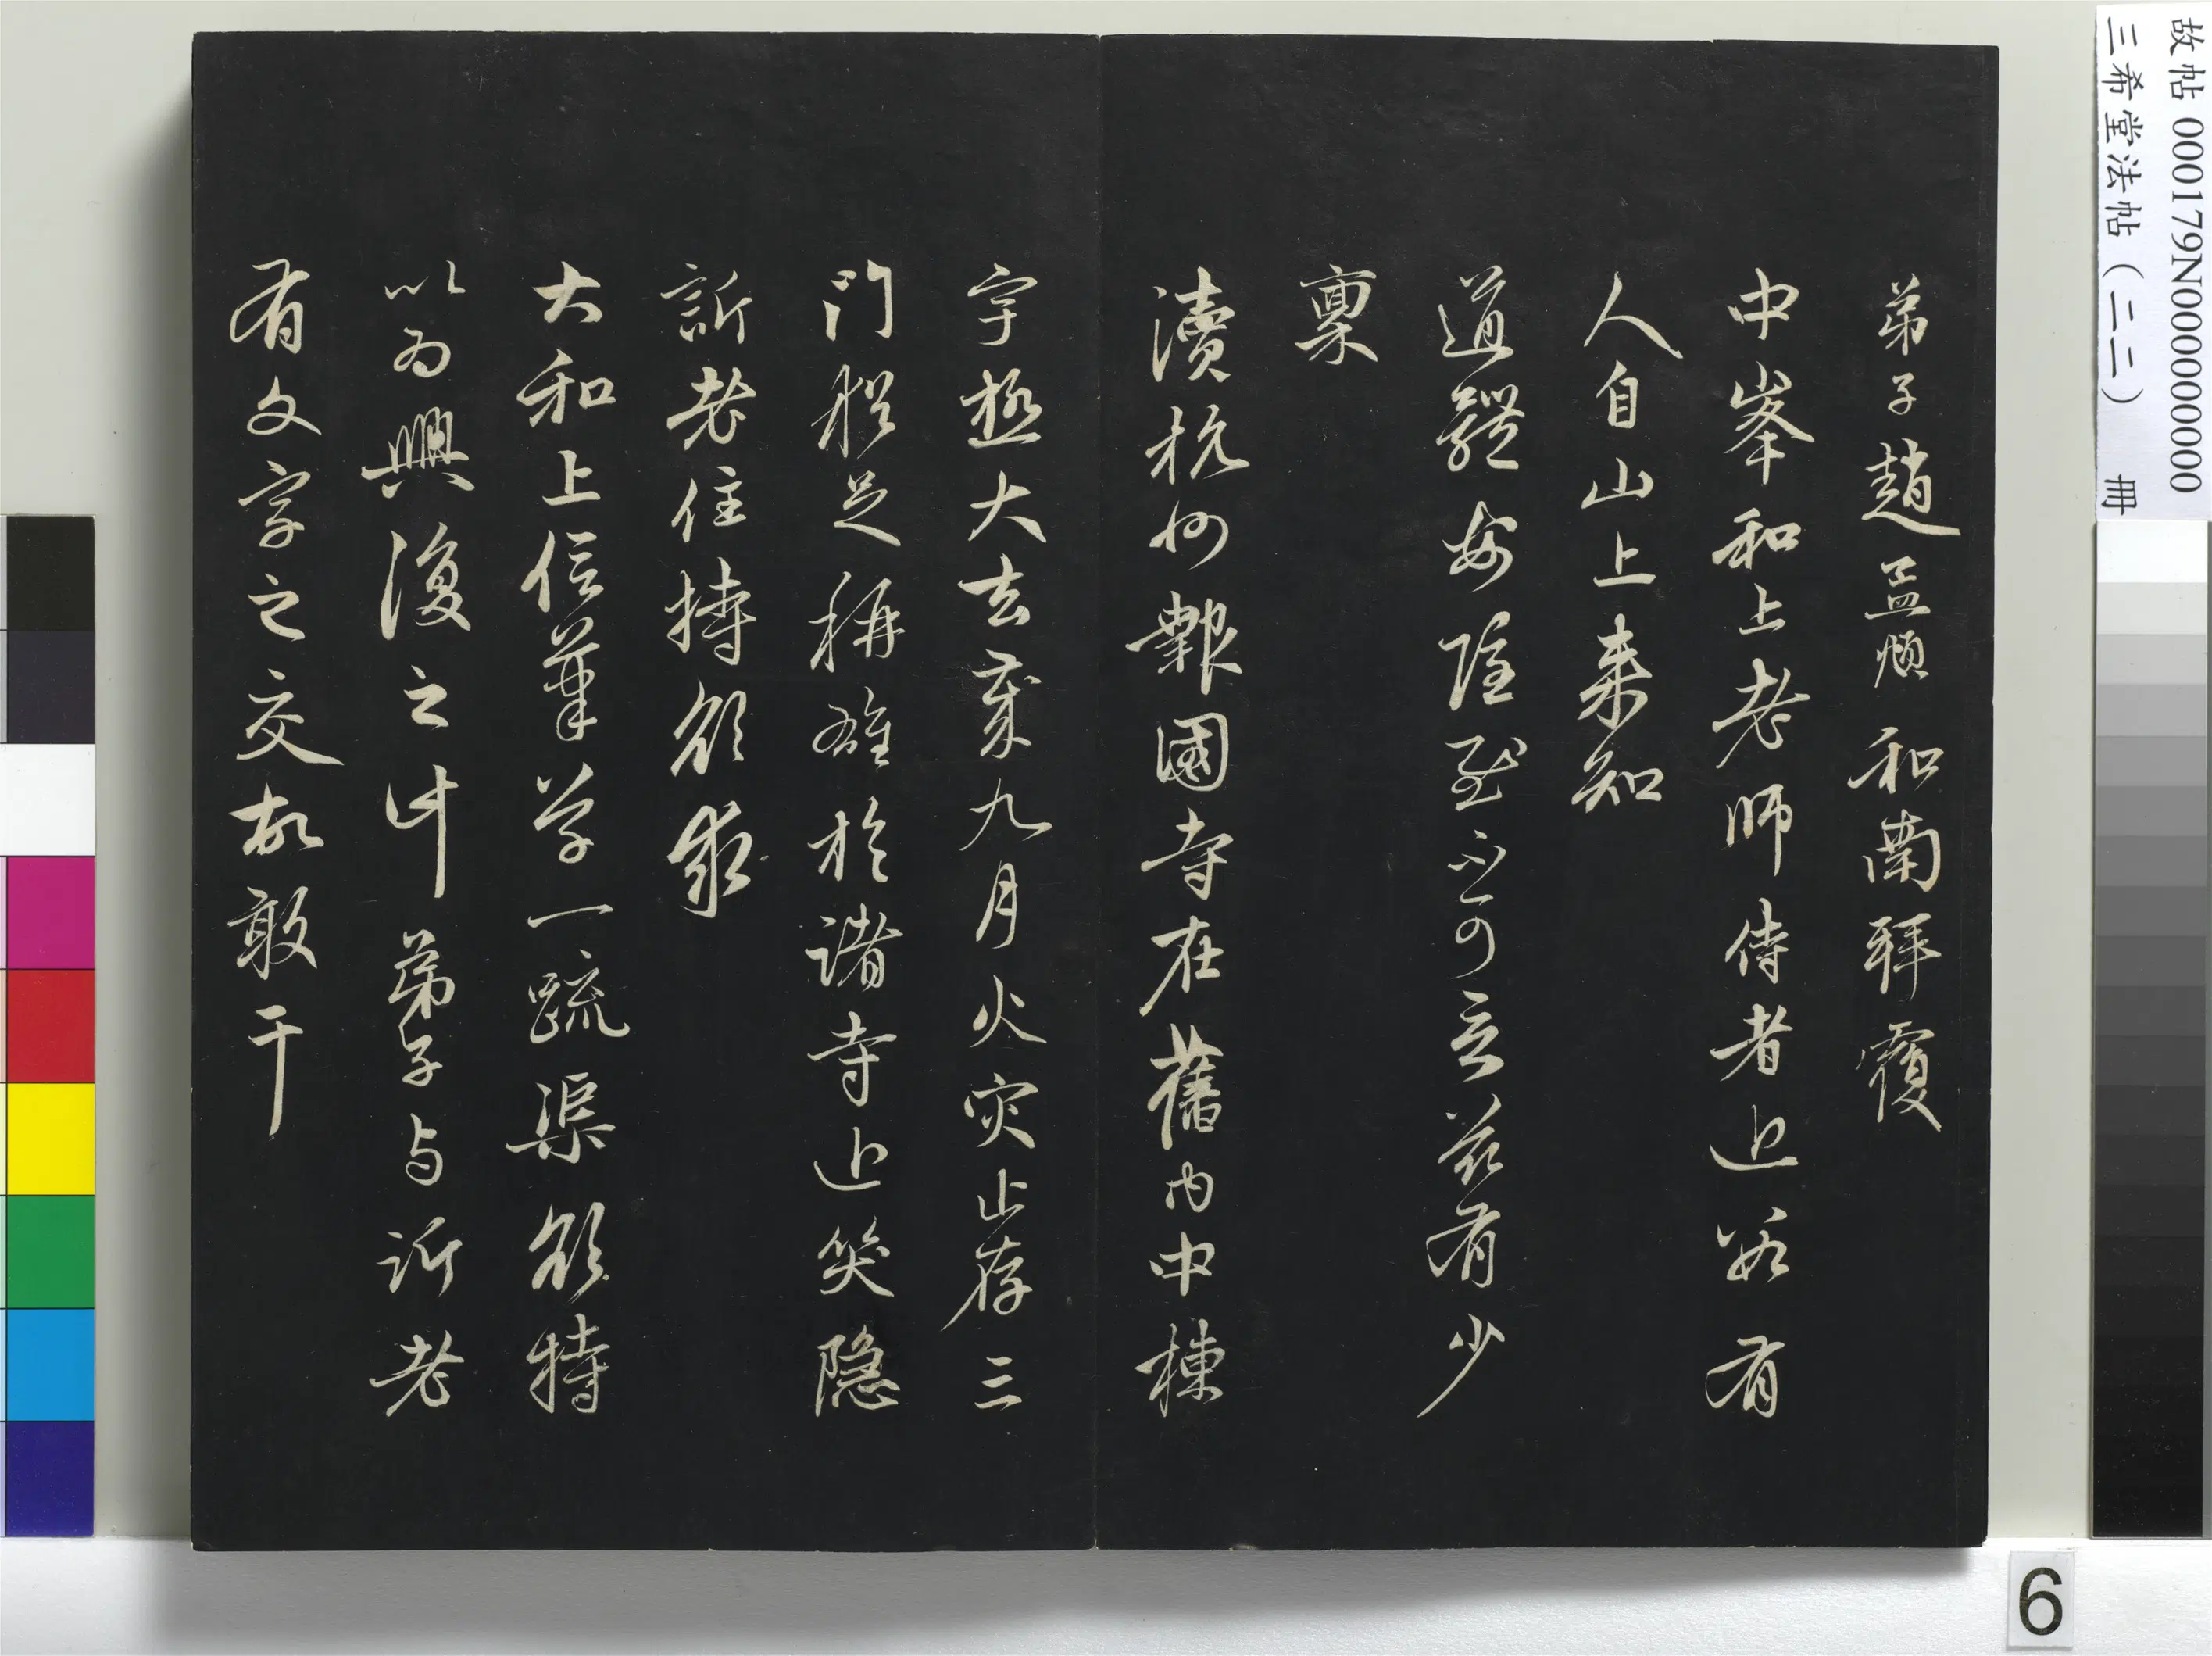 弟子趙孟頫和南拜覆
中峯和上老師侍者近有
人自山上來知
道體安隱不可言茲有少
稟
瀆杭州報國寺在舊内中棟
宇極大去歲九月火災止存三
門猶足稱雄於諸寺近笑隱
訢老住持欲求
大和上信筆草一疏渠欲特
以為興復之計弟子与訢老
有文字之交故敢干
故帖 000179N000000000
三希堂法帖（二二） 冊
6